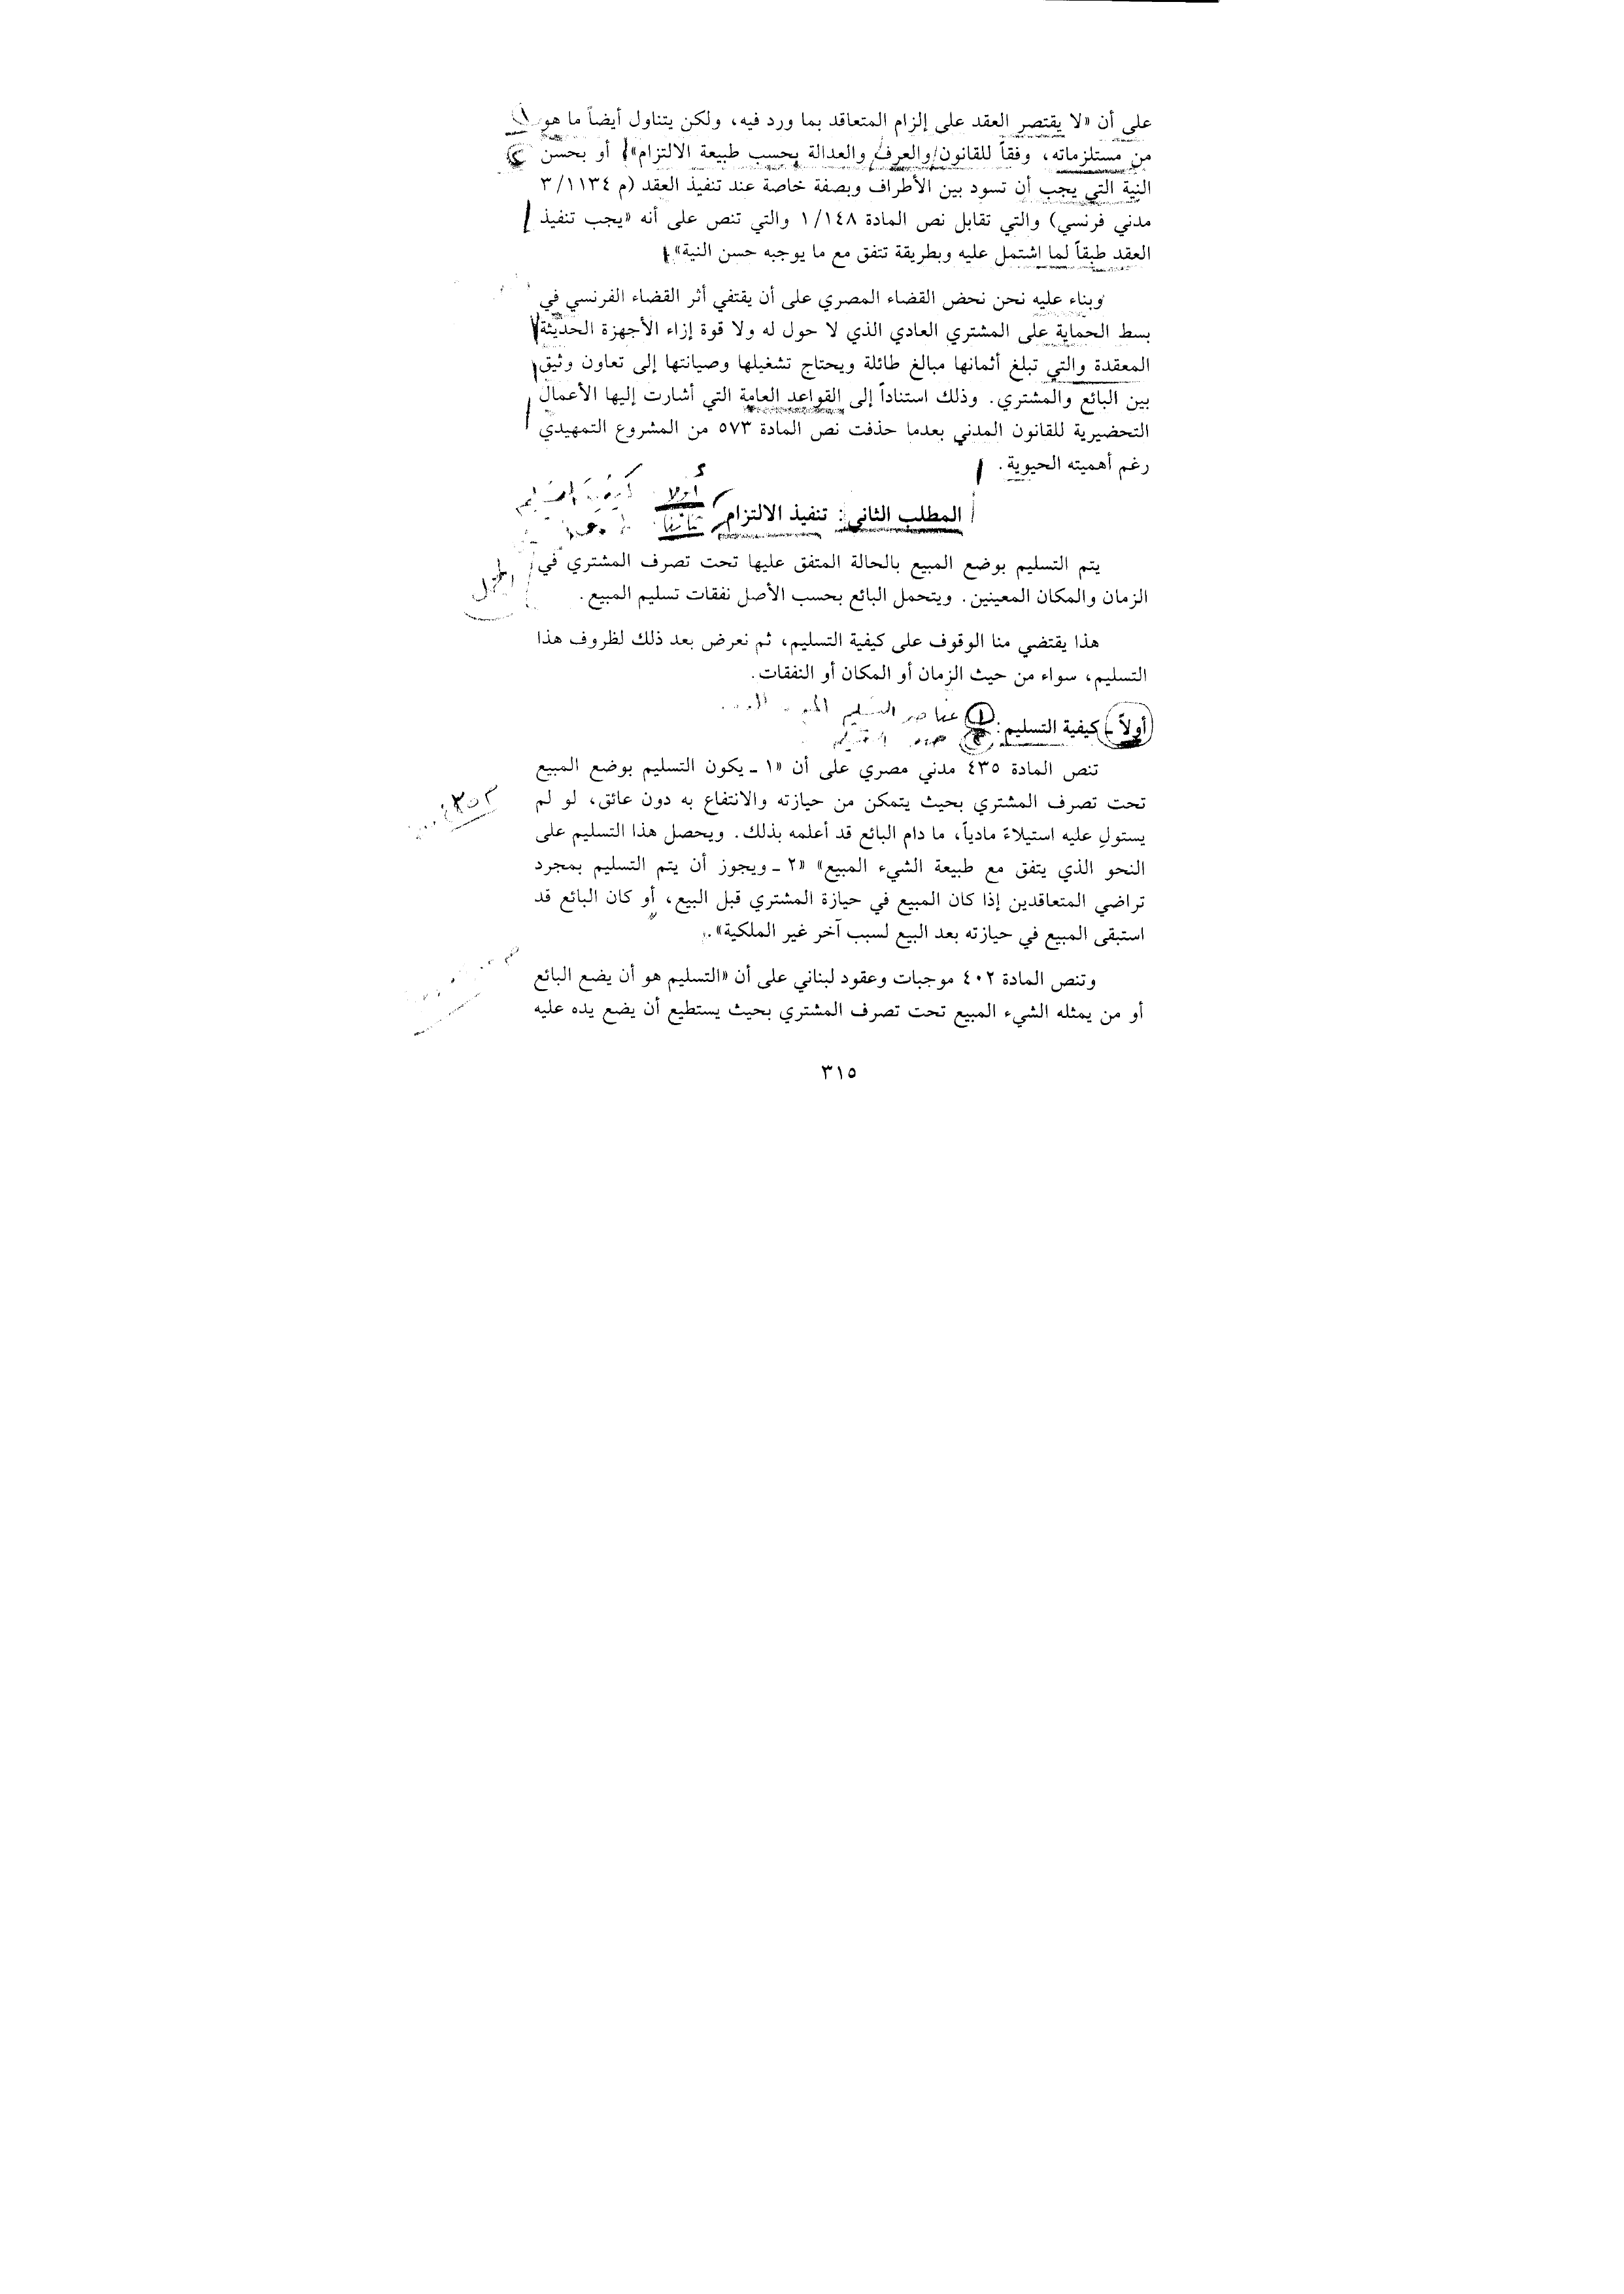 على أن «لا يقتصر العقد على إلزام المتعاقد بما ورد فيه، ولكن يتناول أيضاً ما هو
من مستلزماته، وفقاً للقانون والعرف والعدالة بحسب طبيعة الالتزام» أو بحسن
النية التي يجب أن تسود بين الأطراف وبصفة خاصة عند تنفيذ العقد (م ٣/١١٣٤
مدني فرنسي) والتي تقابل نص المادة ١/١٤٨ والتي تنص على أنه «يجب تنفيذ
العقد طبقاً لما اشتمل عليه وبطريقة تتفق مع ما يوجبه حسن النية»
وبناء عليه نحن نحض القضاء المصري على أن يقتفي أثر القضاء الفرنسي في
بسط الحماية على المشتري العادي الذي لا حول له ولا قوة إزاء الأجهزة الحديثة
المعقدة والتي تبلغ أثمانها مبالغ طائلة ويحتاج تشغيلها وصيانتها إلى تعاون وثيق
بين البائع والمشتري. وذلك استناداً إلى القواعد العامة التي أشارت إليها الأعمال
التحضيرية للقانون المدني بعدما حذفت نص المادة ٥٧٣ من المشروع التمهيدي
رغم أهميته الحيوية.
أولا كيفية التسليم
المطلب الثاني: تنفيذ الالتزام ثانيا
يتم التسليم بوضع المبيع بالحالة المتفق عليها تحت تصرف المشتري في
الزمان والمكان المعينين. ويتحمل البائع بحسب الأصل نفقات تسليم المبيع.
هذا يقتضي منا الوقوف على كيفية التسليم، ثم نعرض بعد ذلك لظروف هذا
التسليم، سواء من حيث الزمان أو المكان أو النفقات.
١ عناصر التسليم
أولاً ـ كيفية التسليم: ٢ صور التسليم
تنص المادة ٤٣٥ مدني مصري على أن «١ ـ يكون التسليم بوضع المبيع
تحت تصرف المشتري بحيث يتمكن من حيازته والانتفاع به دون عائق، لو لم
يستولِ عليه استيلاءً مادياً، ما دام البائع قد أعلمه بذلك. ويحصل هذا التسليم على
النحو الذي يتفق مع طبيعة الشيء المبيع» «٢ ـ ويجوز أن يتم التسليم بمجرد
تراضي المتعاقدين إذا كان المبيع في حيازة المشتري قبل البيع، أو كان البائع قد
استبقى المبيع في حيازته بعد البيع لسبب آخر غير الملكية».
وتنص المادة ٤٠٢ موجبات وعقود لبناني على أن «التسليم هو أن يضع البائع
أو من يمثله الشيء المبيع تحت تصرف المشتري بحيث يستطيع أن يضع يده عليه
٣١٥